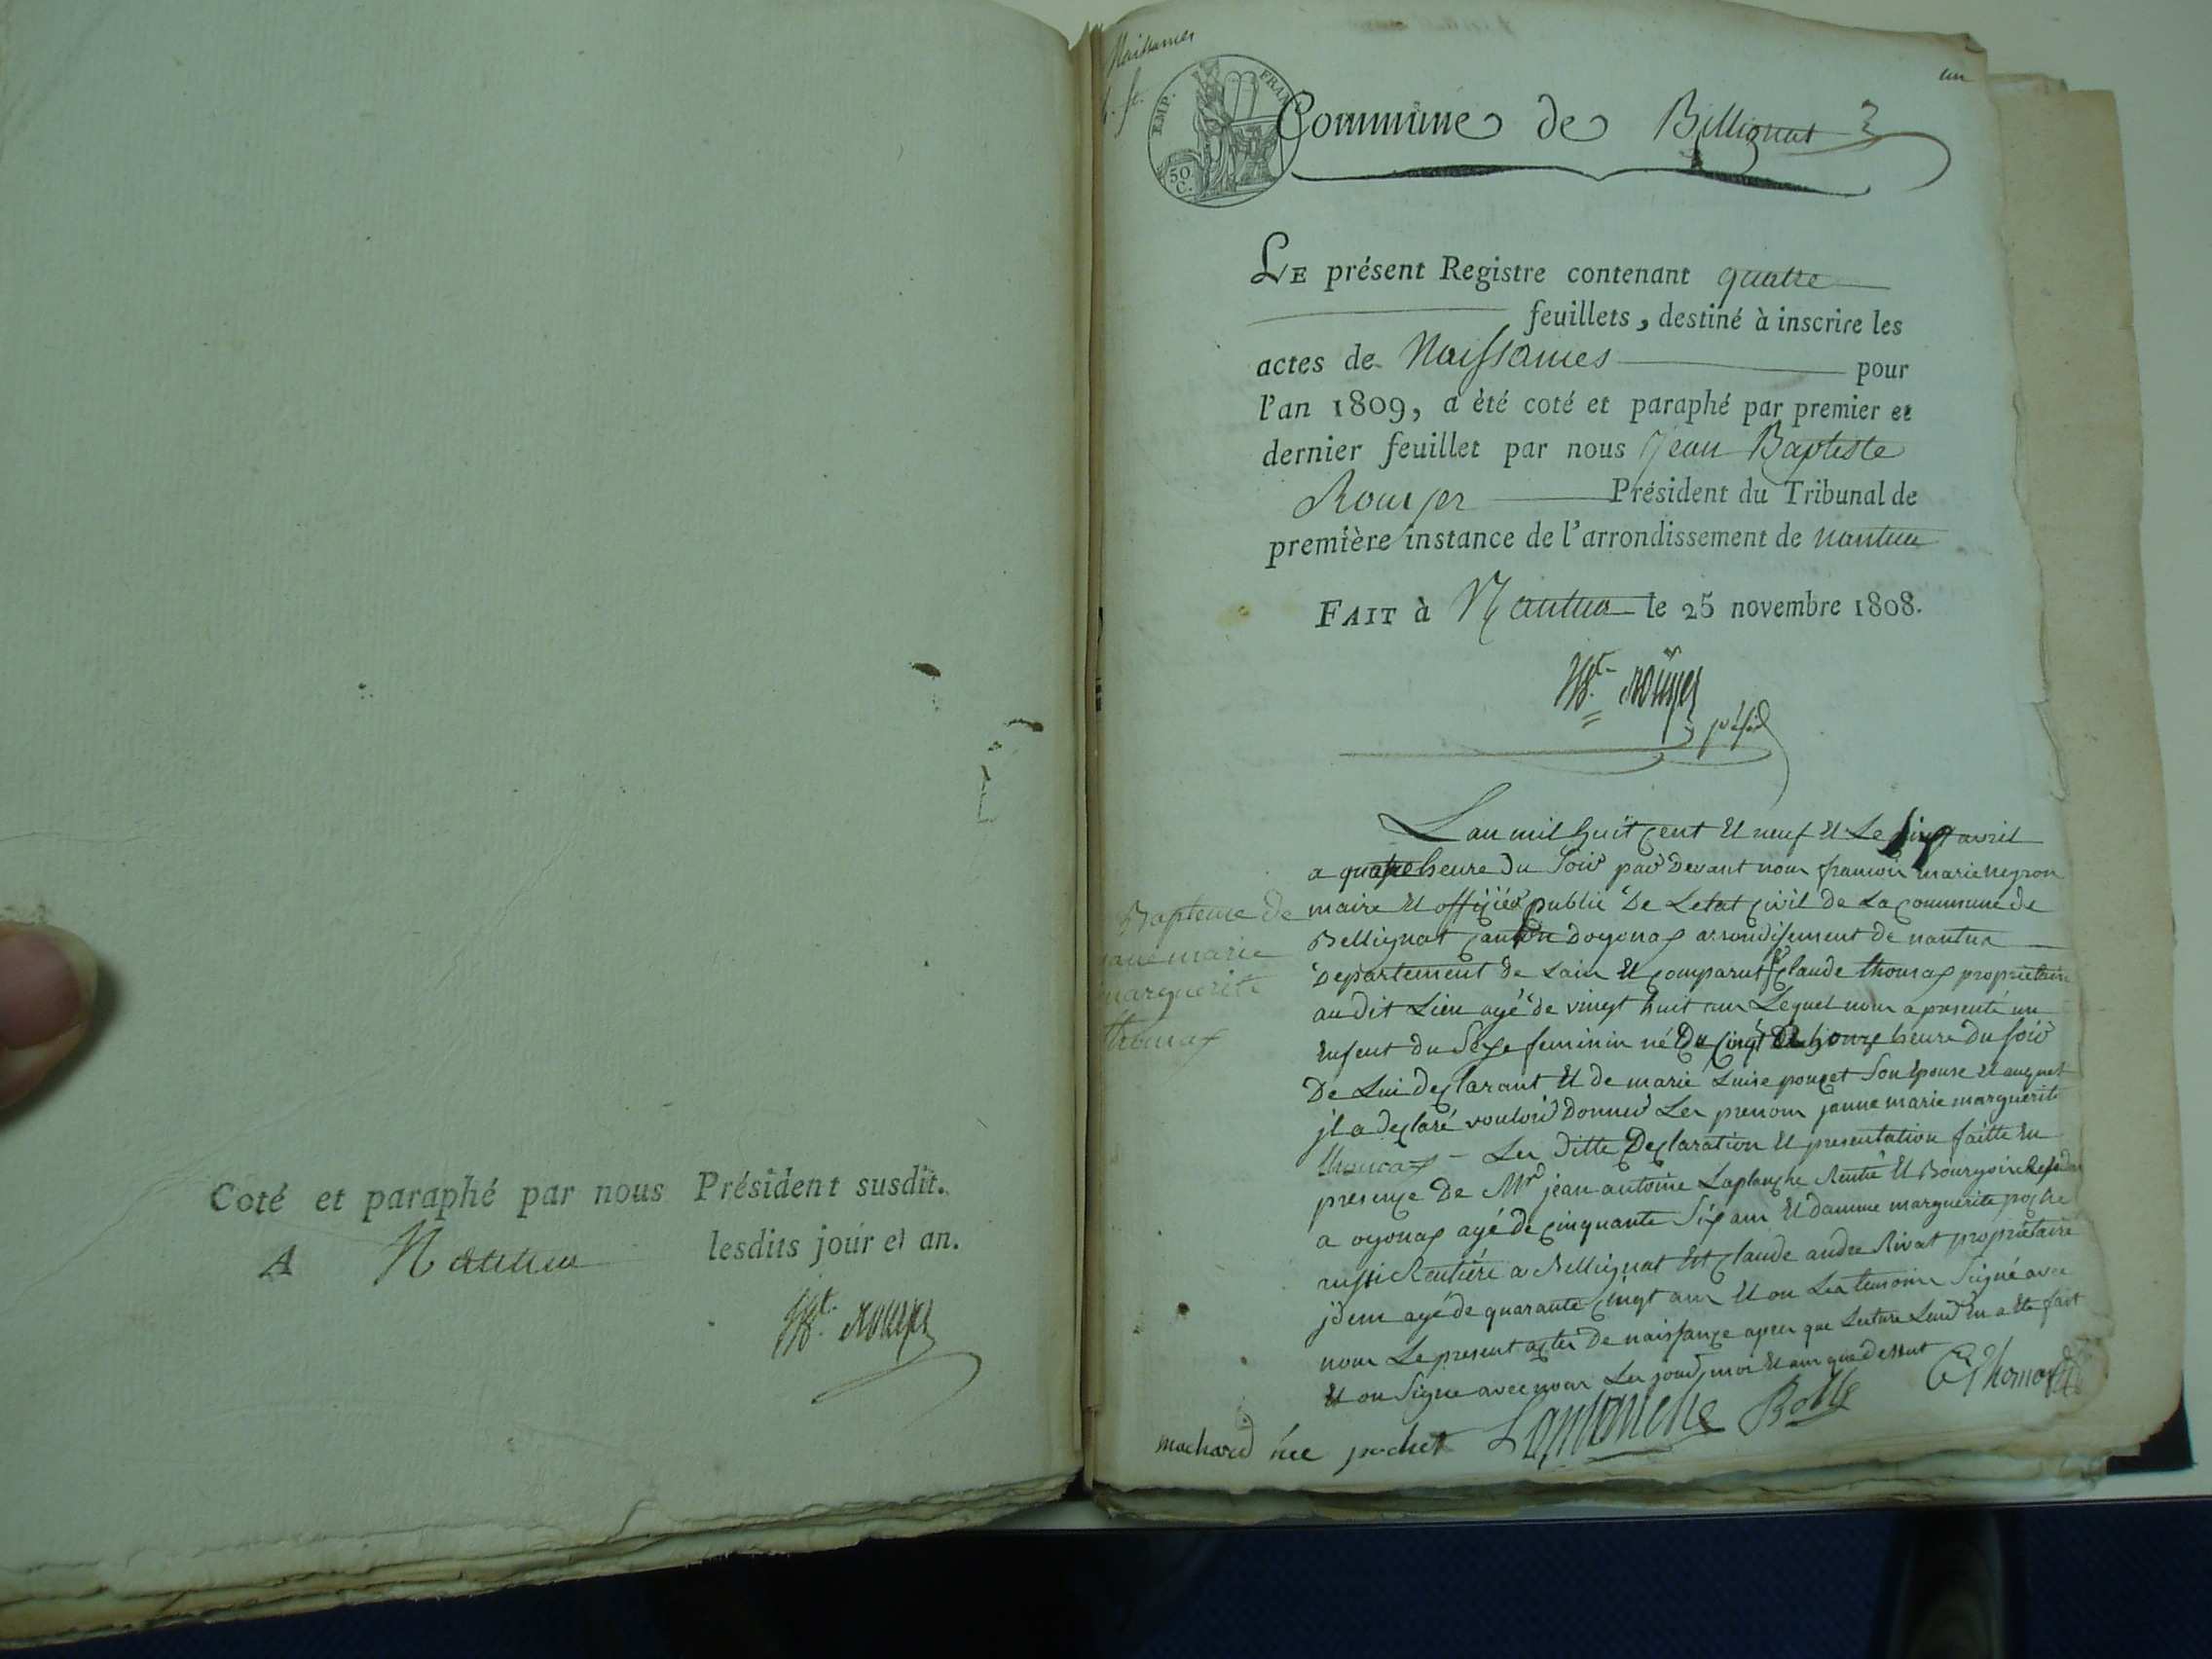 Coté et paraphé par nous Président susdit.
A Nantua lesdits jour et an.
Naissances
un
EMP. FRAN
50 C.
Commune de Bellignat
LE présent Registre contenant quatre
feuillets, destiné à inscrire les
actes de Naissances pour
l'an 1809, a été coté et paraphé par premier et
dernier feuillet par nous Jean Baptiste
Rouyer Président du Tribunal de
première instance de l'arrondissement de nantua
FAIT à Nantua le 25 novembre 1808.
Bapteme de
jane marie
marguerite
thomas
Lan mil huit cent et neuf et Le avril
a quatre heure du Soir par Devant nous francois marie neyron
maire et officier public De Letat civil de La commune de
Bellignat canton doyonax arrondissement de nantua
Departement de Lain et comparut Claude thomas proprietaire
audit Lieu agé de vingt huit ans Lequel nous a presenté un
enfent du Sexe feminin né Du cinqt a honze heure Du soir
De Lui declarant et de marie Luise ponçet Son epouse et auquel
jl a declaré vouloir Donner Les prenom janne marie marguerite
thomas - Les ditte Declaration et presentation faitte en
presence De Mr jean antoine Laplanche Rentié et Bourgoin
a oyonax agé de cinquante Six ans et damme marguerite
aussi Rentiére a Bellignat et Claude andre Rivat proprietaire
jdem agé de quarante cinqt ans et on Les temoins Signé avec
nous Le present actes De naissance apres que Lecture Leur en a ete fait
et on Signe avec nous Les jour, mois et ans que dessut
machard née pochet Laplanche Cl Thomas